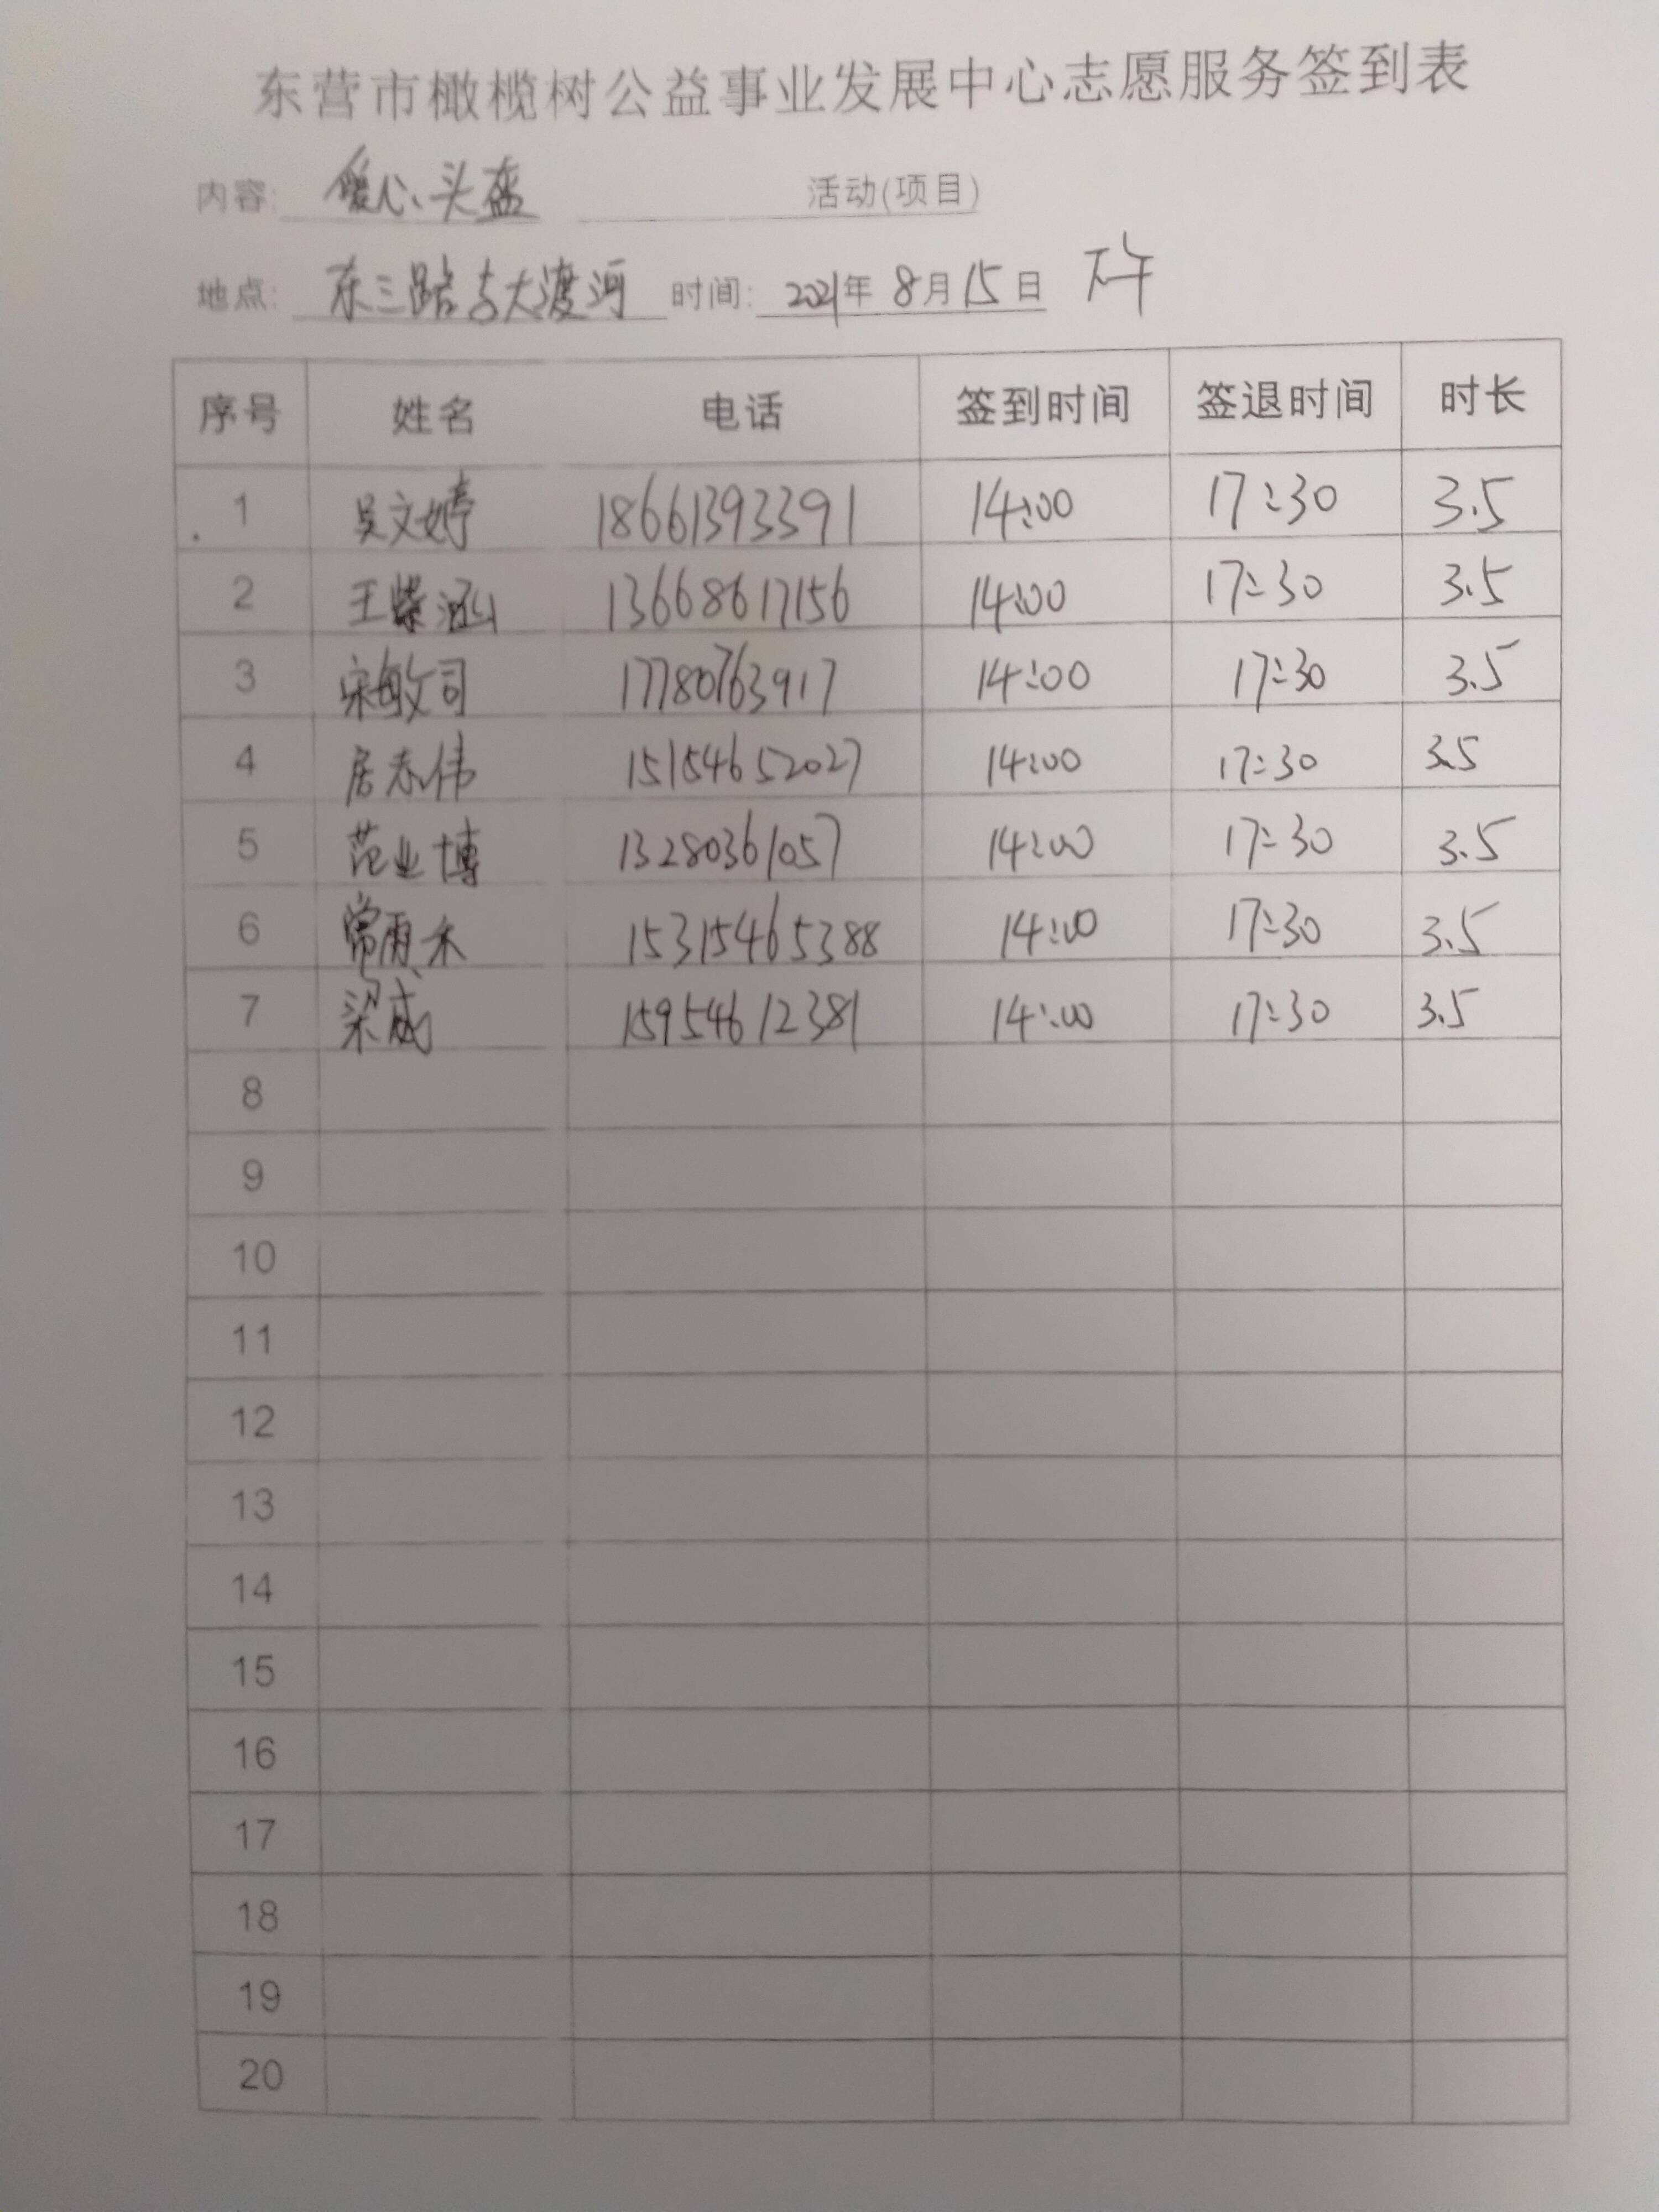 东营市橄榄树公益事业发展中心志愿服务签到表
内容: 暖心头盔 活动(项目)
地点: 东三路与大渡河 时间: 2021年 8月15日 下午
序号 姓名 电话 签到时间 签退时间 时长
1 吴文婷 18661393391 14:00 17:30 3.5
2 王紫涵 13668617156 14:00 17:30 3.5
3 宋敏司 17780763917 14:00 17:30 3.5
4 居志伟 15154652027 14:00 17:30 3.5
5 范业博 13280361057 14:00 17:30 3.5
6 常雨禾 15315465388 14:00 17:30 3.5
7 梁威 15954612381 14:00 17:30 3.5
8
9
10
11
12
13
14
15
16
17
18
19
20